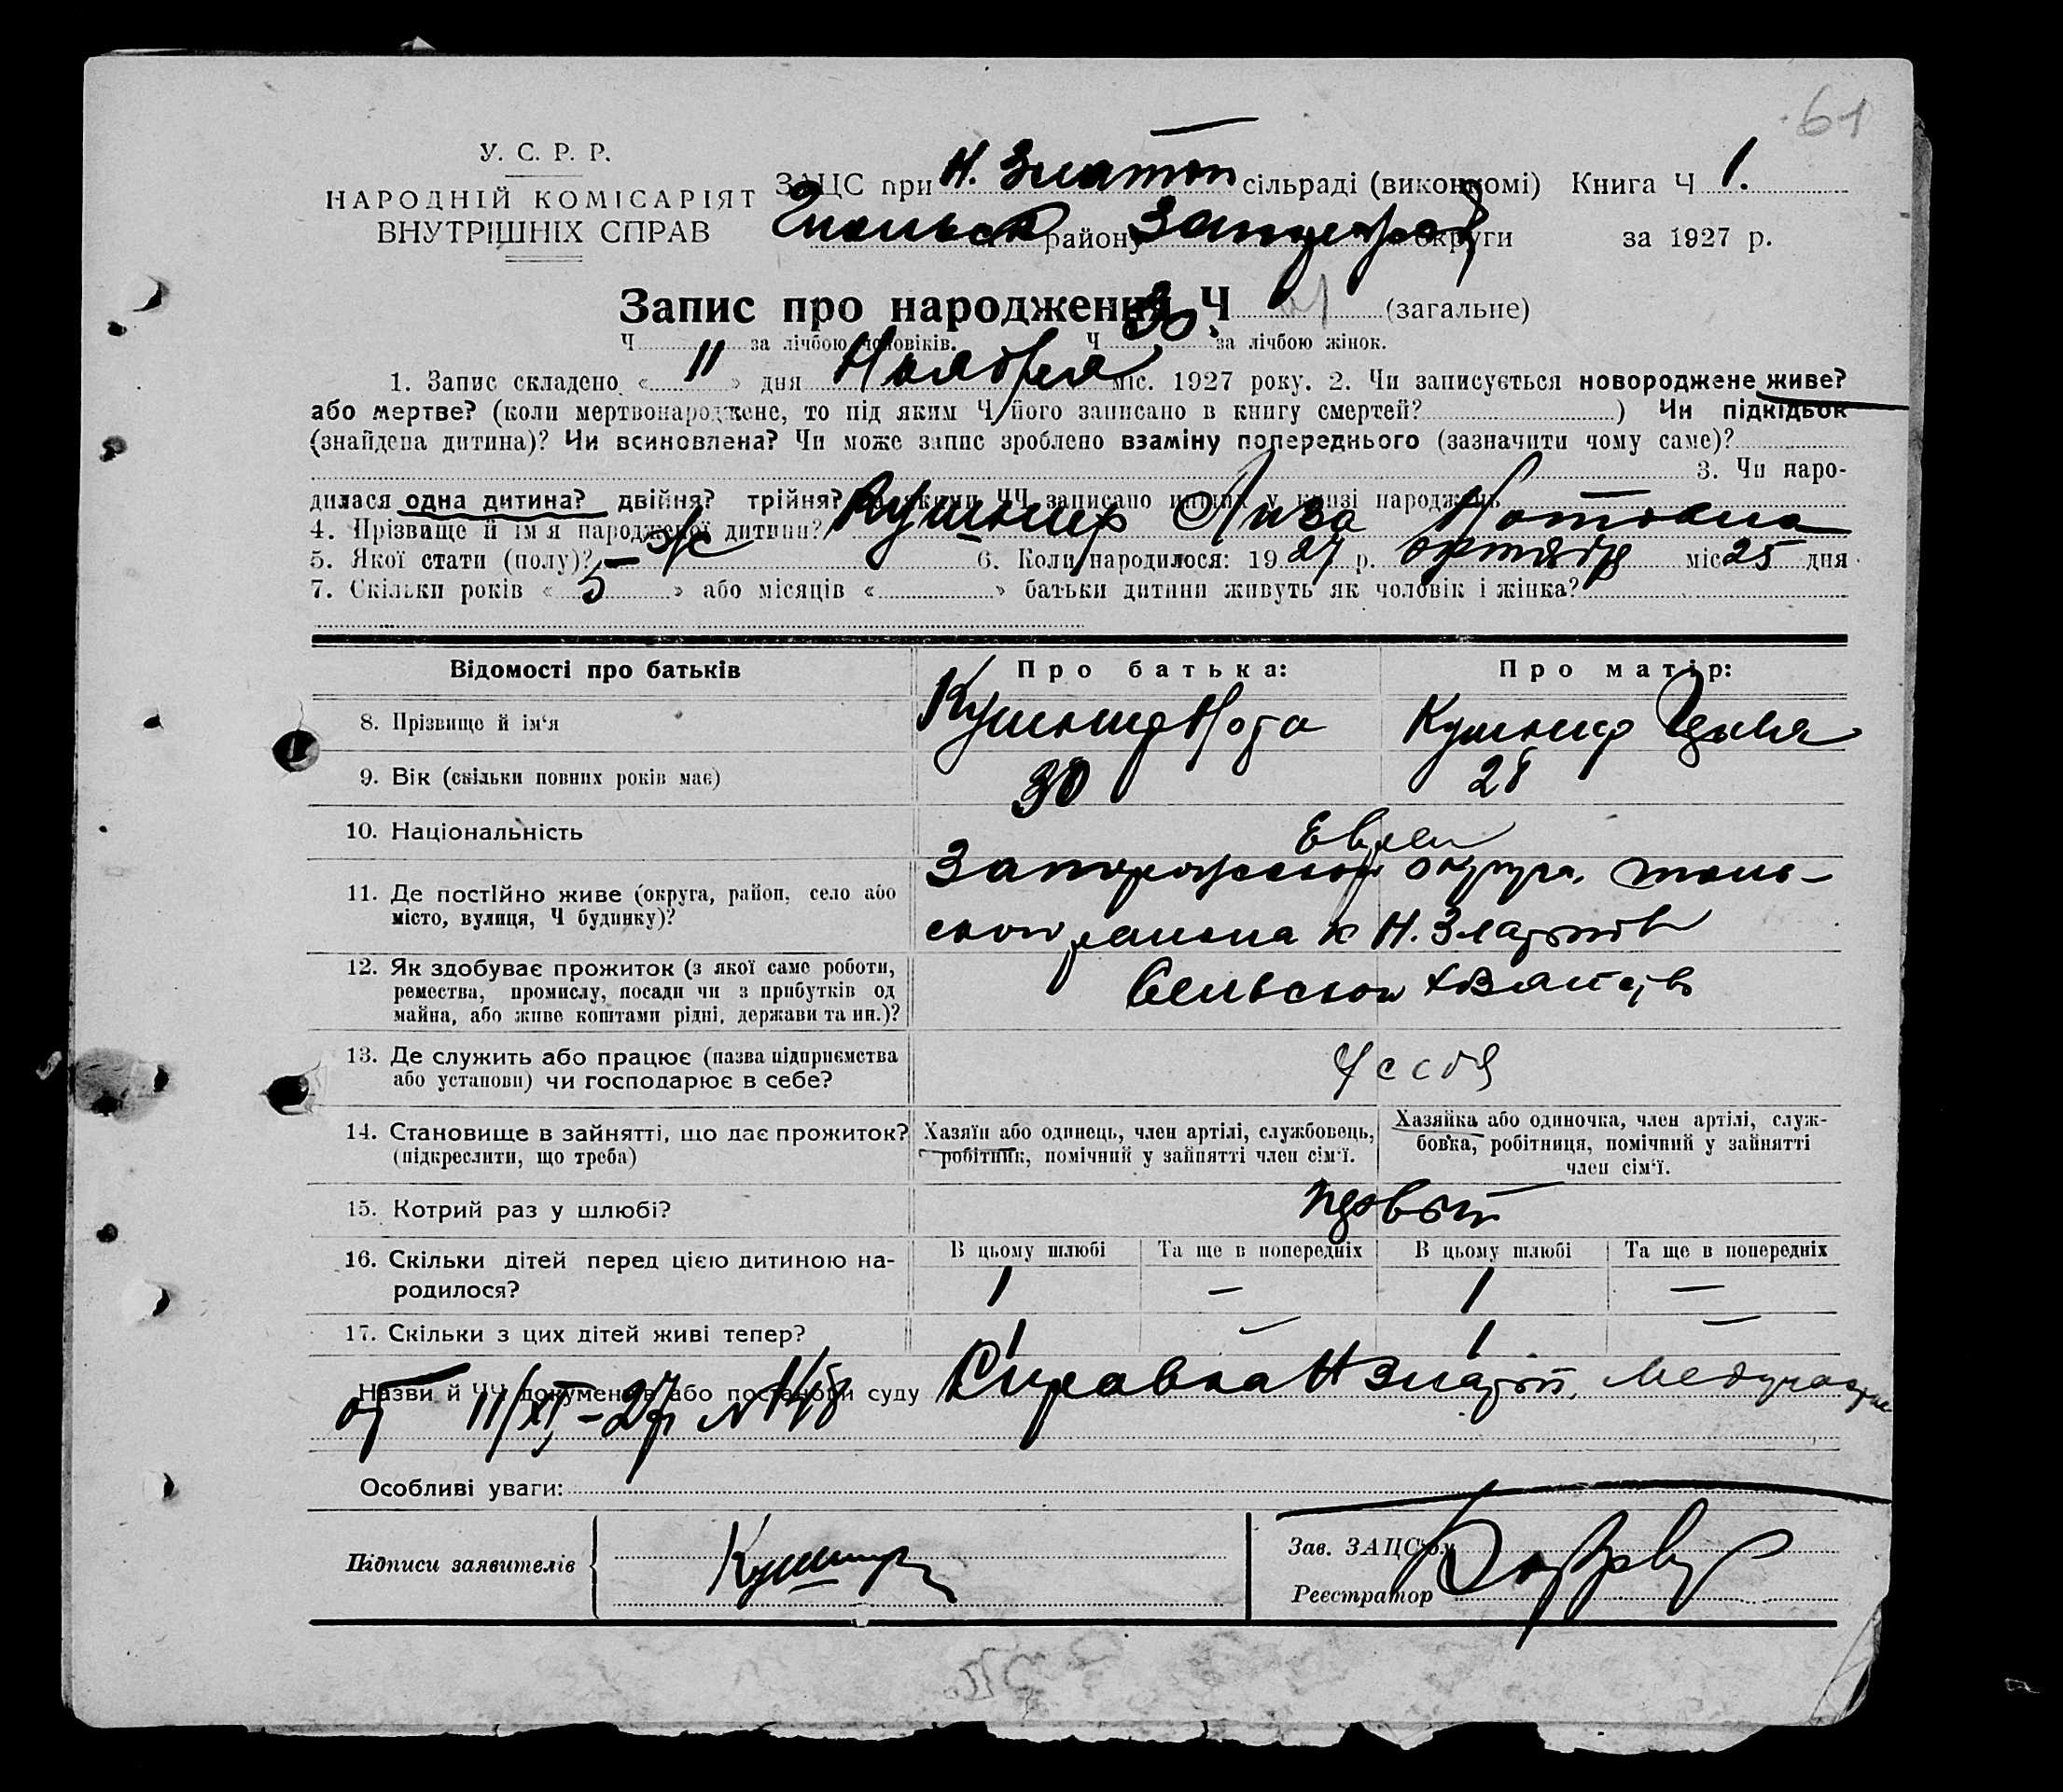 61
У. С. Р. Р.
НАРОДНІЙ КОМІСАРІЯТ
ВНУТРІШНІХ СПРАВ
ЗАЦС при Н. Златоп сільраді (виконкомі) Книга Ч 1.
району округи за 1927 р.
Запис про народження Ч (загальне)
Ч за лічбою чоловіків. Ч 30 за лічбою жінок.
1. Запис складено « 11 » дня Ноября міс. 1927 року. 2. Чи записується новороджене живе?
або мертве? (коли мертвонароджене, то під яким Ч його записано в книгу смертей? ) Чи підкідьок
(знайдена дитина)? Чи всиновлена? Чи може запис зроблено взаміну попереднього (зазначити чому саме)?
3. Чи наро-
дилася одна дитина? двійня? трійня? Під якими ЧЧ записано инших у книзі народжень
4. Прізвище й ім'я народженої дитини? Кушнир Лиза Нотовна
5. Якої стати (полу)? ж 6. Коли народилося: 1927 р. октября міс 25 дня
7. Скільки років « 5 » або місяців « » батьки дитини живуть як чоловік і жінка?
Відомості про батьків Про батька: Про матір:
8. Прізвище й ім'я Кушнир Нота Кушнир Цыля
9. Вік (скільки повних років має) 30 28
10. Національність Евреи
11. Де постійно живе (округа, район, село або
місто, вулиця, Ч будинку)?
Запорожской округа,
района к Н. Златополь
12. Як здобуває прожиток (з якої саме роботи,
ремества, промислу, посади чи з прибутків од
майна, або живе коштами рідні, держави та ин.)?
Сельском
13. Де служить або працює (назва підприємства
або установи) чи господарює в себе?
У себя
14. Становище в зайнятті, що дає прожиток?
(підкреслити, що треба)
Хазяїн або одинець, член артілі, службовець,
робітник, помічний у зайнятті член сім'ї.
Хазяйка або одиночка, член артілі, служ-
бовка, робітниця, помічний у зайнятті
член сім'ї.
15. Котрий раз у шлюбі?
16. Скільки дітей перед цією дитиною на-
родилося?
В цьому шлюбі Та ще в попередніх В цьому шлюбі Та ще в попередніх
1 — 1 —
17. Скільки з цих дітей живі тепер? 1 — 1 —
Назви й ЧЧ документів або постанови суду Справка Н Златоп. Медучастка
от 11/XI-27
Особливі уваги:
Підписи заявителів Кушнир
Зав. ЗАЦС'ом
Реєстратор